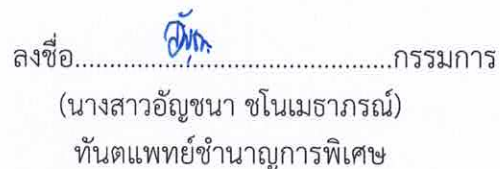 ลงชื่อ............................................กรรมการ
(นางสาวอัญชนา ชโนเมธาภรณ์)
ทันตแพทย์ชำนาญการพิเศษ